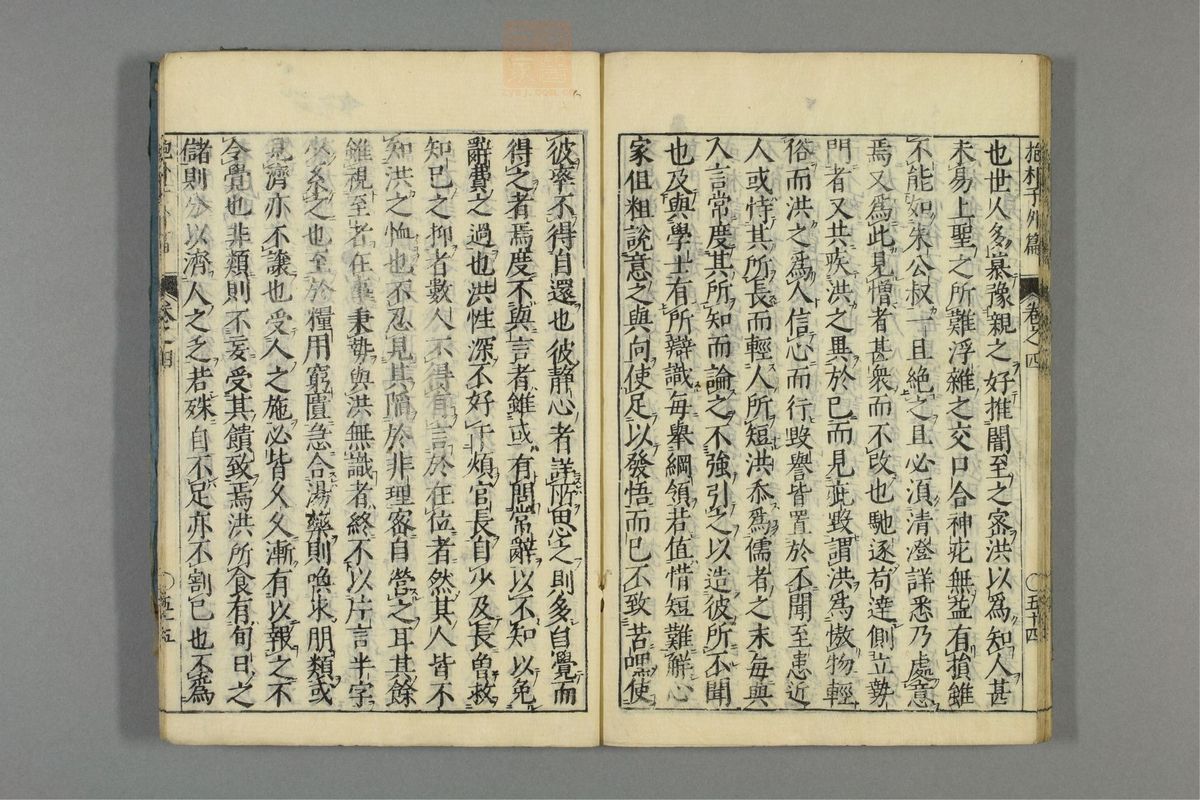 抱朴子外篇 卷之四 〇五十四
也世人多慕豫親之好推闇至之密洪以爲知人甚
未易上聖之所難浮雜之交口合神疕無益有損雖
不能如朱公叔一旦絶之且必湏清澄詳悉乃處意
焉又爲此見憎者甚衆而不改也馳逐苟達側立勢
門者又共疾洪之異於已而見疵毀謂洪爲傲物輕
俗而洪之爲人信心而行毀譽皆置於不聞至患近
人或恃其所長而輕人所短洪忝爲儒者之末每與
人言常度其所知而論之不強引之以造彼所不聞
也及與學士有所辯識每舉綱領若值惜短難解心
家但粗說意之與向使足以發悟而已不致苦理使
彼率不得自還也彼静心者詳而思之則多自覺而
得之者焉度不與言者雖或有問常辭以不知以免
辭費之過也洪性深不好干煩官長自少及長曽救
知已之抑者數人不得有言於在位者然其人皆不
知洪之恤也不忍見其陷於非理密自營之耳其餘
雖視至者在事秉勢與洪無識者終不以片言半字
衆之也至於糧用窮匱急合湯藥則喚求朋類或
見濟亦不讓也受人之施必皆久久漸有以報之不
令覺也非類則不妄受其饋致焉洪所食有旬日之
儲則分以濟人之乏若殊自不足亦不割已也不爲